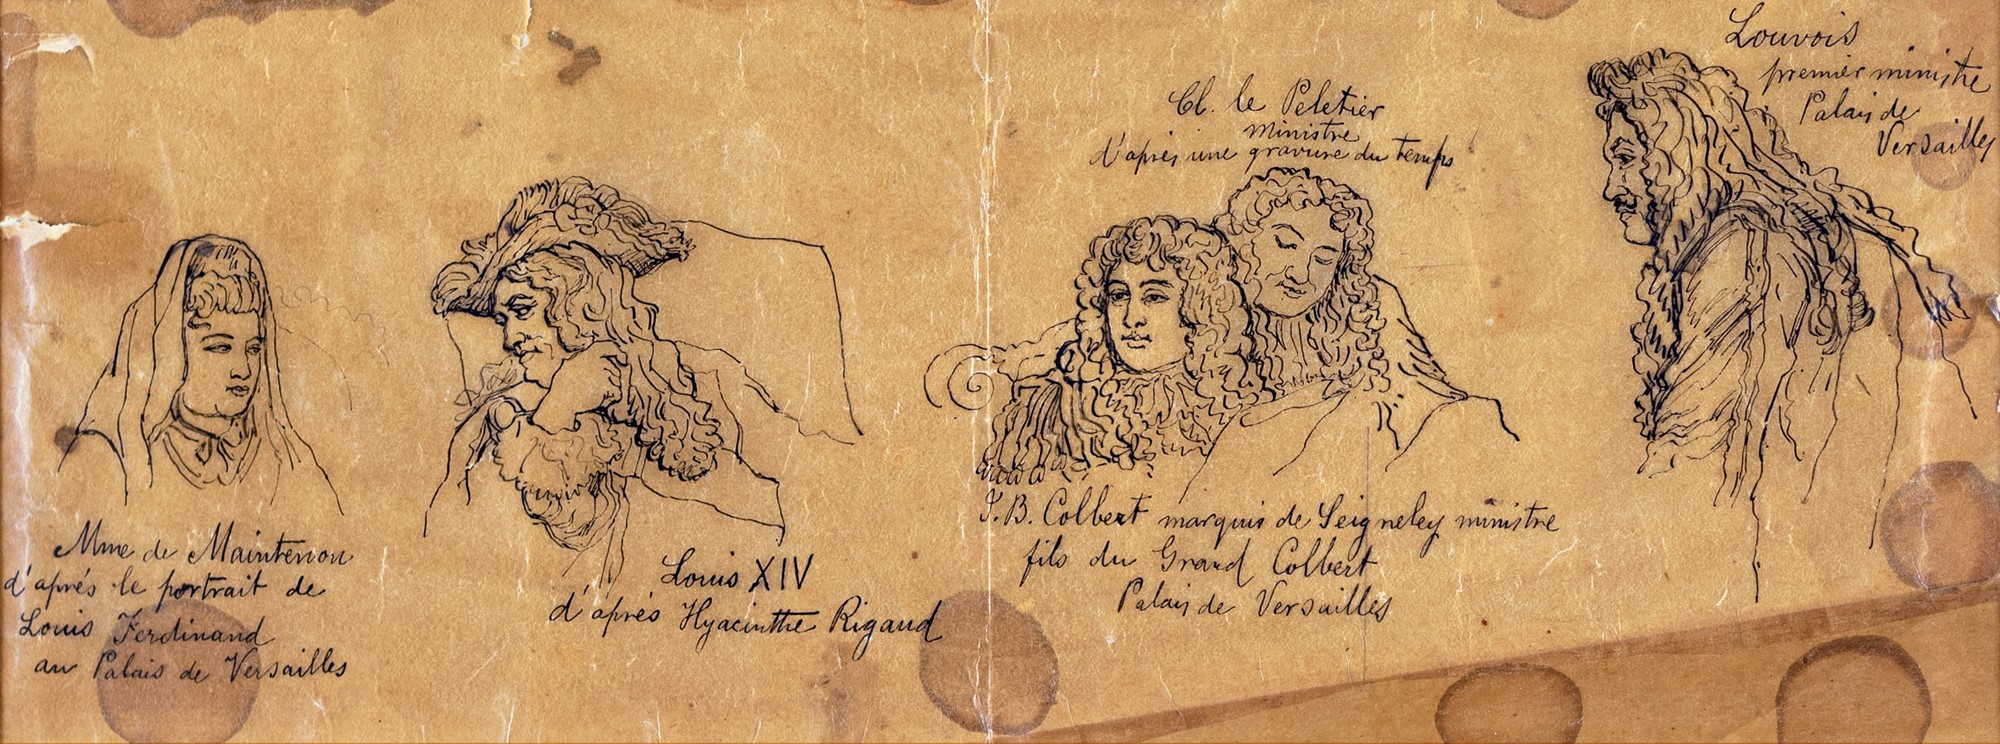 Mme de Maintenon
d'aprés le portrait de
Louis Ferdinand
au Palais de Versailles
Louis XIV
d'aprés Hyacinthe Rigaud
Cl. le Peletier
ministre
d'aprés une gravure du temps
J. B. Colbert marquis de Seigneley ministre
fils du Grand Colbert
Palais de Versailles
Louvois
premier ministre
Palais de
Versailles